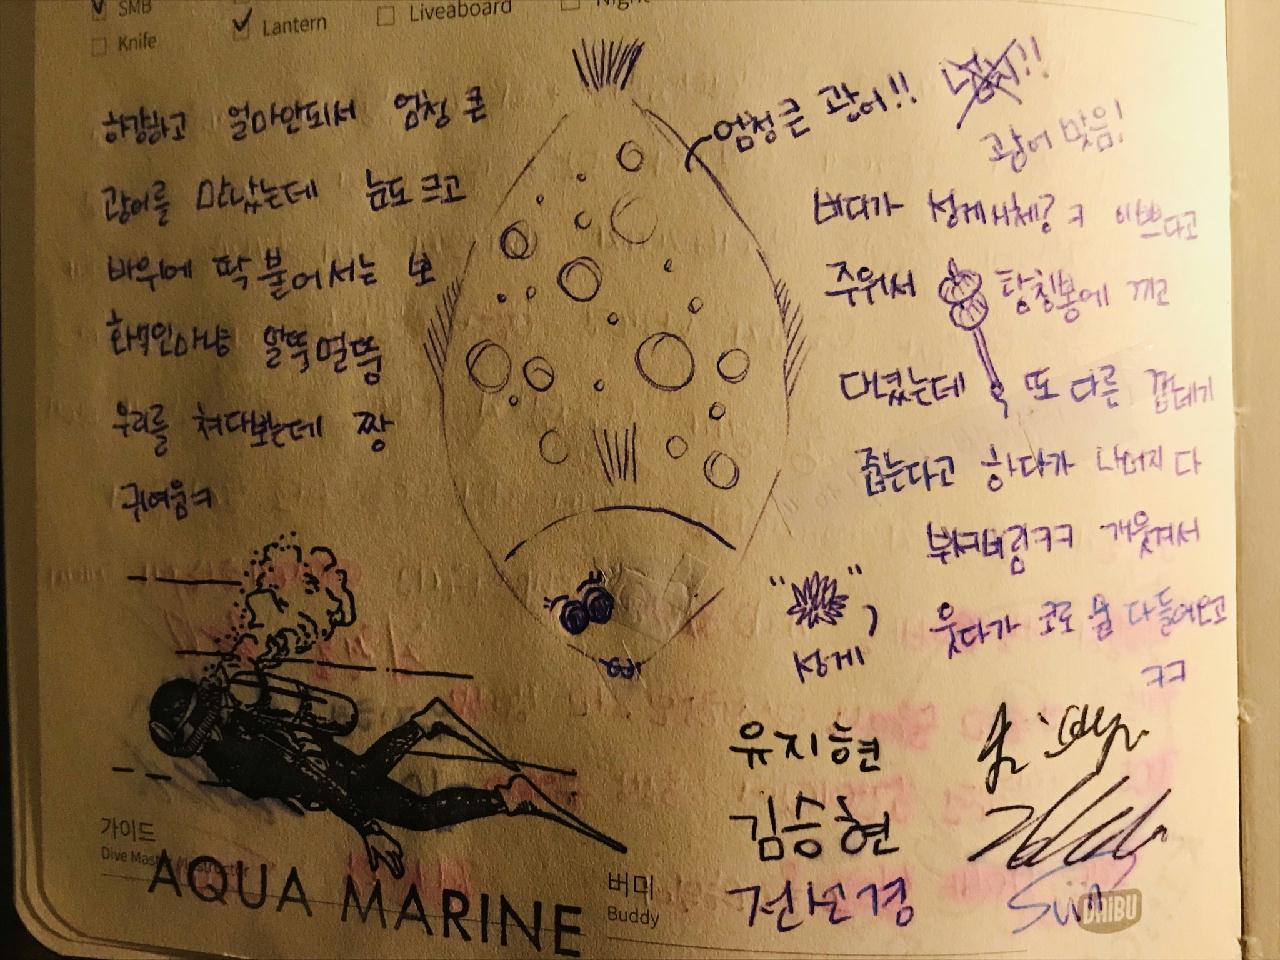 SMB
Knife
Lantern
Liveaboard
하강하고 얼마안되서 엄청 큰
광어를 만났는데 눈도 크고
바위에 딱 붙어서는 보
호색인마냥 얼뚱멀뚱
우리를 쳐다보는데 짱
귀여움ㅋ
엄청 큰 광어!!
광어 맞음!
버디가 성게시체? ㅋ 이쁘다고
주워서 탐침봉에 끼고
다녔는데 또 다른 껍데기
줍는다고 하다가 나머지 다
뿌셔버림ㅋㅋ 개웃겨서
웃다가 코로 물 다들어오고
ㅋㅋ
" ",
성게
유지현
김승현
전선경
Sun
가이드
Dive Master / Instructor
AQUA MARINE
버디
Buddy
DAIBU